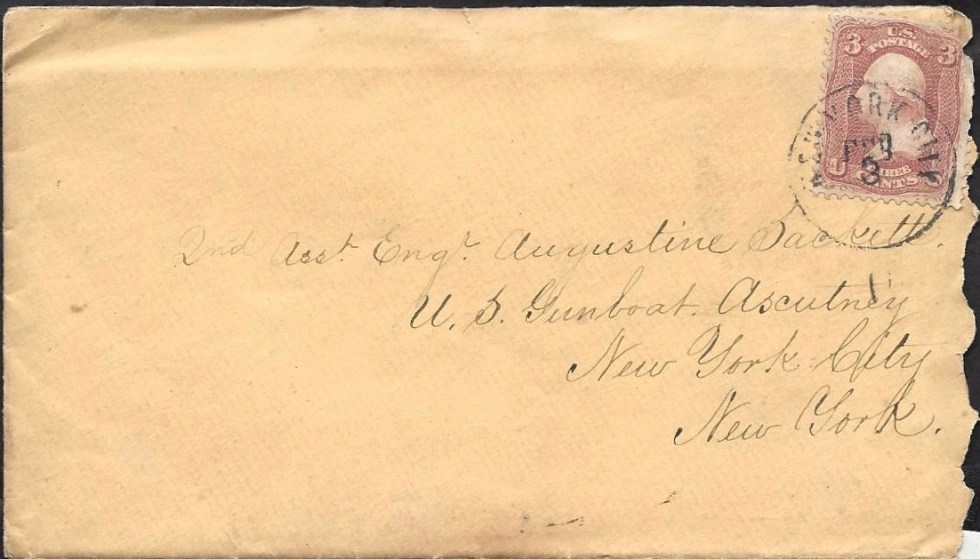 3 U.S. 3
POSTAGE
NEW YORK CITY
FEB
3
U CENTS
2nd Asst Engr. Augustine Sackett.
U. S. Gunboat. Ascutney
New York City
New York.